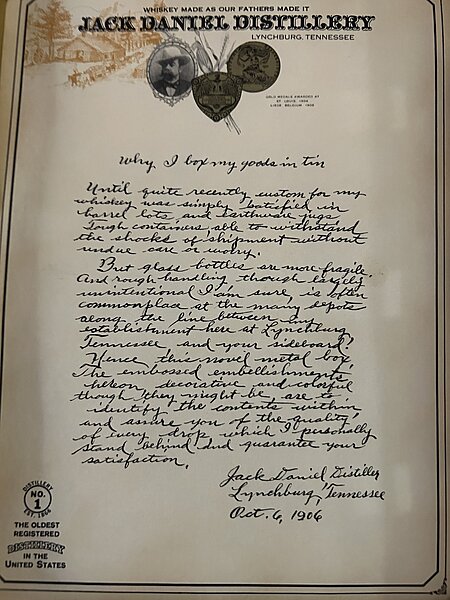 WHISKEY MADE AS OUR FATHERS MADE IT
JACK DANIEL DISTILLERY
LYNCHBURG, TENNESSEE
GOLD MEDALS AWARDED AT
ST. LOUIS, 1904
LIEGE, BELGIUM, 1905
Why I box my goods in tin
Until quite recently custom for my
whiskey was simply satisfied in
barrel lots and earthware jugs
Tough containers able to withstand
the shocks of shipment without
undue care or worry.
But glass bottles are more fragile.
And rough handling though largely
unintentional I am sure, is often
commonplace at the many depots
along the line between my
establishment here at Lynchburg
Tennessee and your sideboard!
Hence this novel metal box.
The embossed embellishments
hereon decorative and colorful
though they might be, are to
identify the contents within
and assure you of the quality
of every drop which I personally
stand behind and guarantee your
satisfaction.
Jack Daniel Distiller
Lynchburg, Tennessee
Oct. 6, 1906
DISTILLERY
NO.
1
EST. 1866
THE OLDEST
REGISTERED
DISTILLERY
IN THE
UNITED STATES